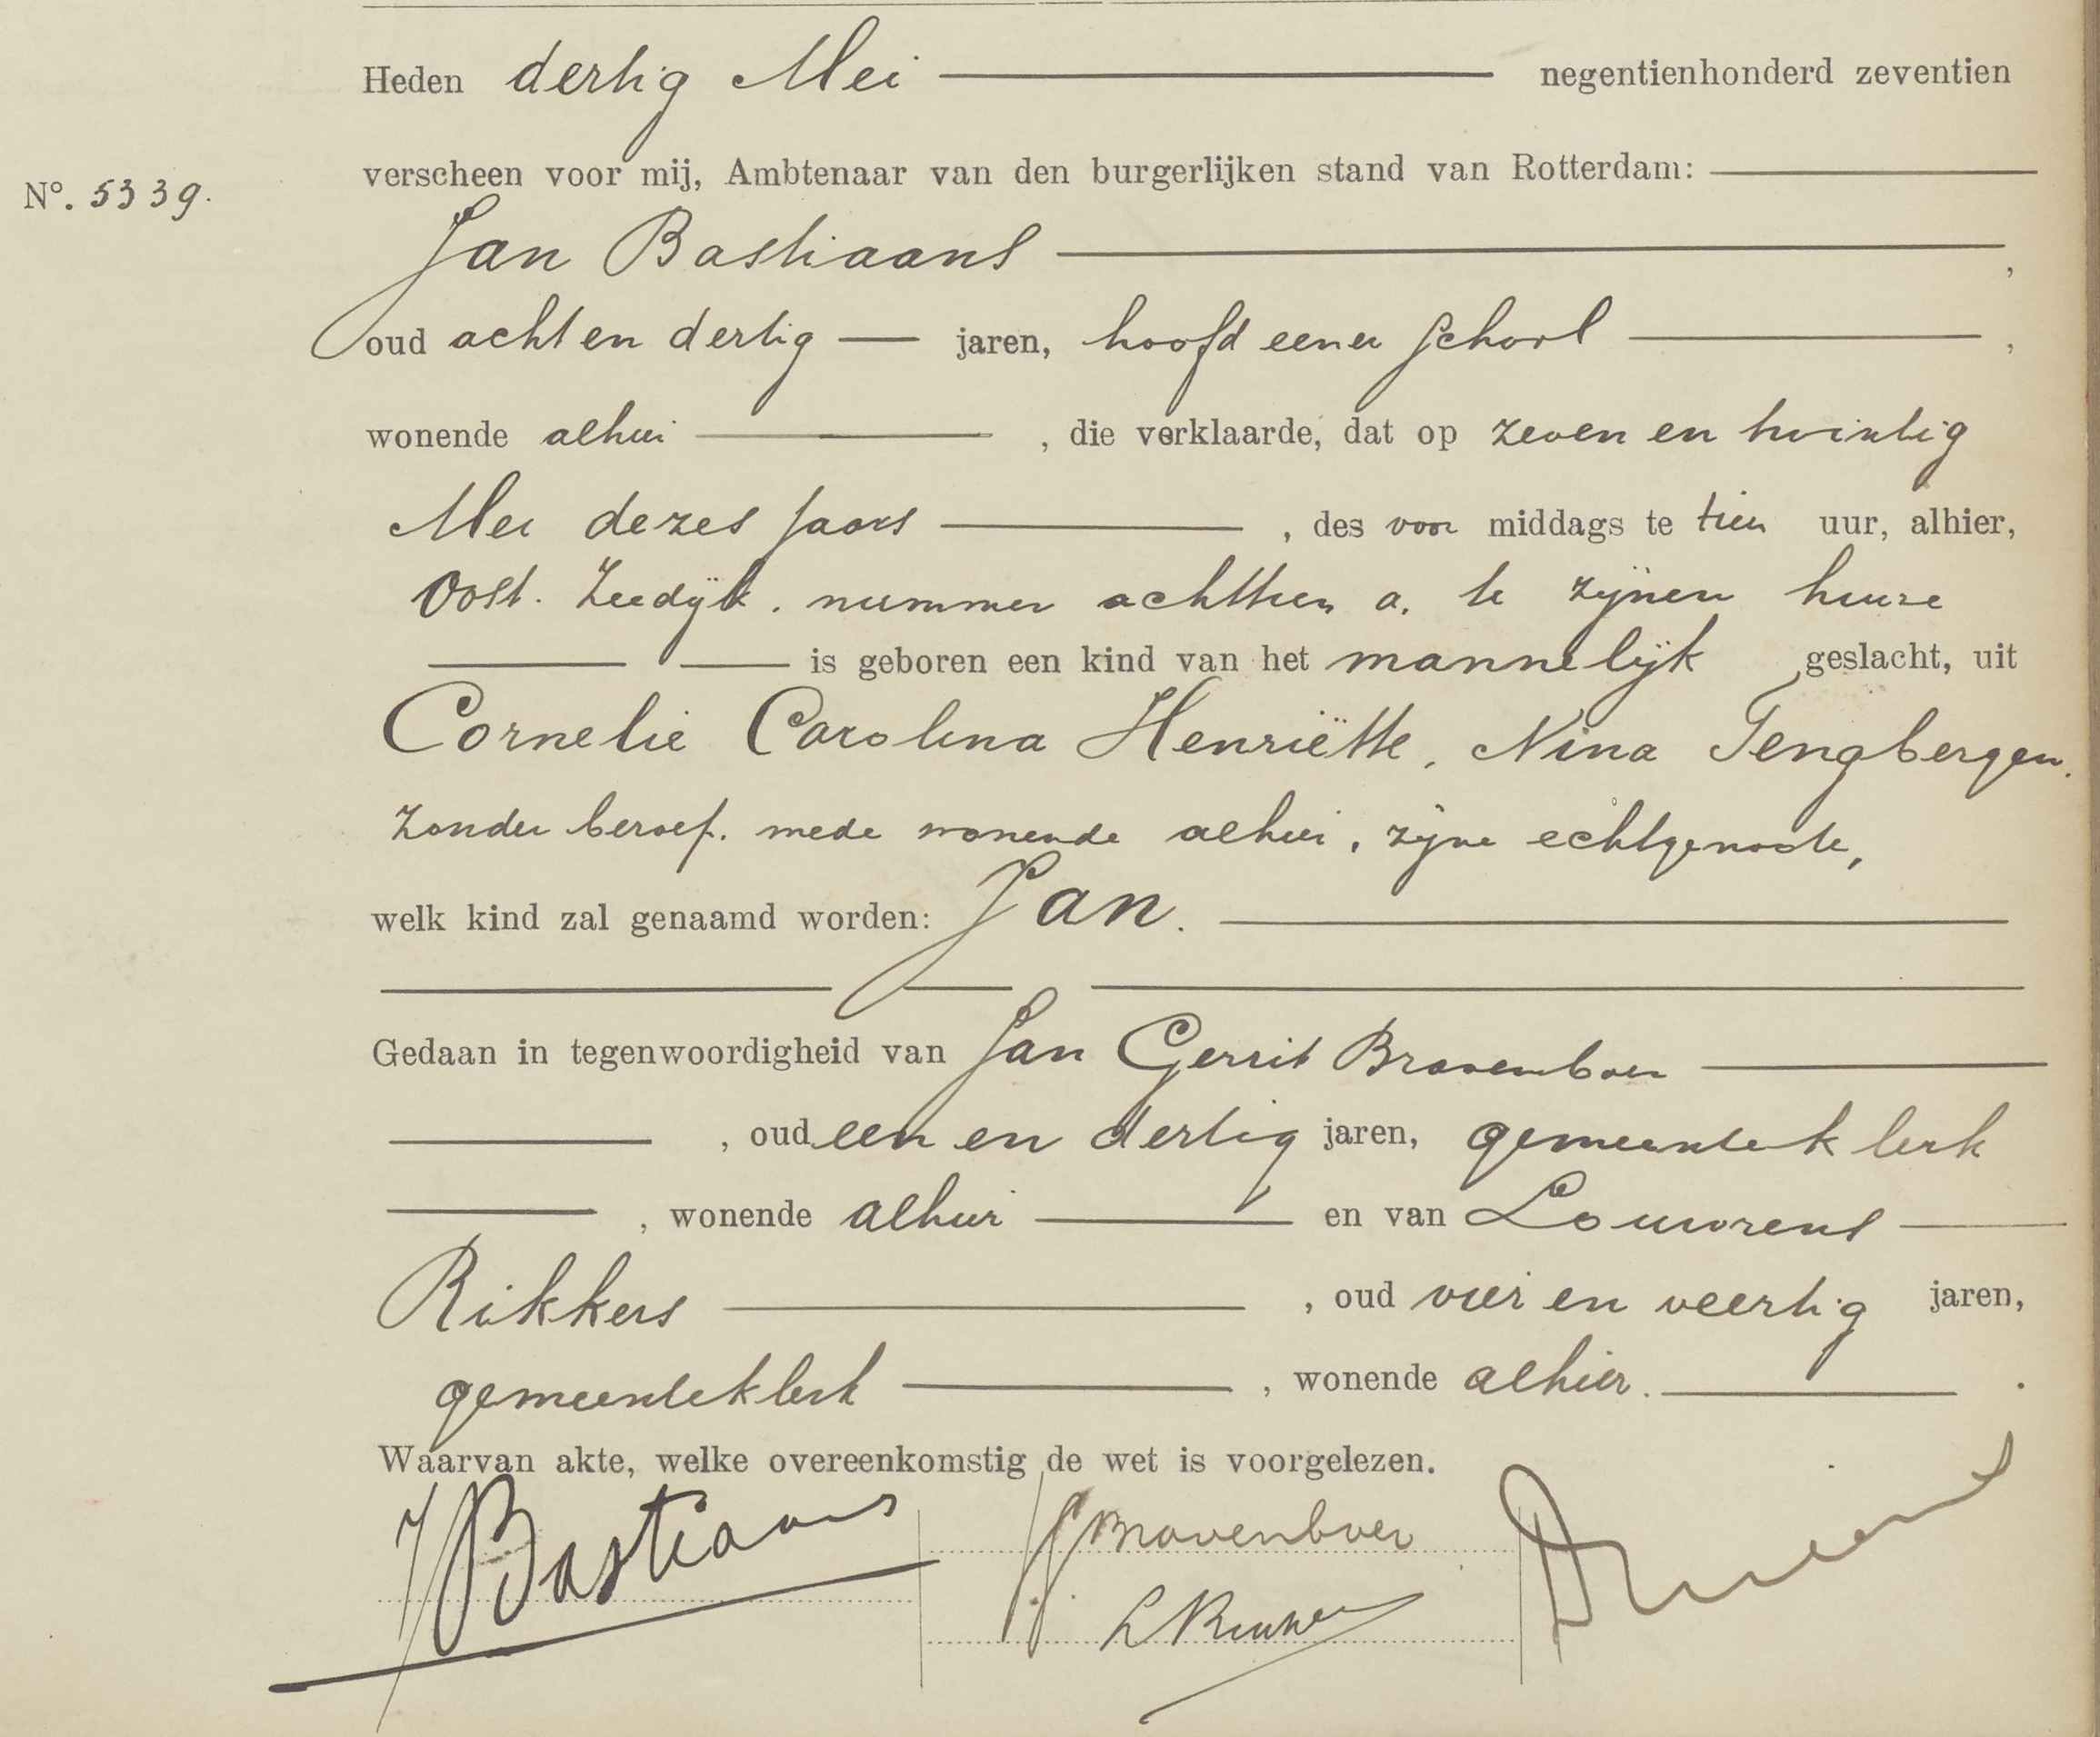 Heden dertig Mei negentienhonderd zeventien
verscheen voor mij, Ambtenaar van den burgerlijken stand van Rotterdam:
No. 5339.
Jan Bastiaans ,
oud acht en dertig jaren, hoofd eener school ,
wonende alhier , die verklaarde, dat op zeven en twintig
Mei dezes jaars , des voor middags te tien uur, alhier,
Oost. Zeedijk. nummer achttien a. te zijnen huize
is geboren een kind van het mannelijk geslacht, uit
Cornelie Carolina Henriëtte, Nina Tengbergen.
zonder beroep. mede wonende alhier, zijne echtgenoote,
welk kind zal genaamd worden: Jan.
Gedaan in tegenwoordigheid van Jan Gerrit Bravenboer
, oud een en dertig jaren, gemeenteklerk
, wonende alhier en van Louwrens
Rikkers , oud vier en veertig jaren,
gemeenteklerk , wonende alhier. .
Waarvan akte, welke overeenkomstig de wet is voorgelezen.
J Bastiaans
JG Bravenboer